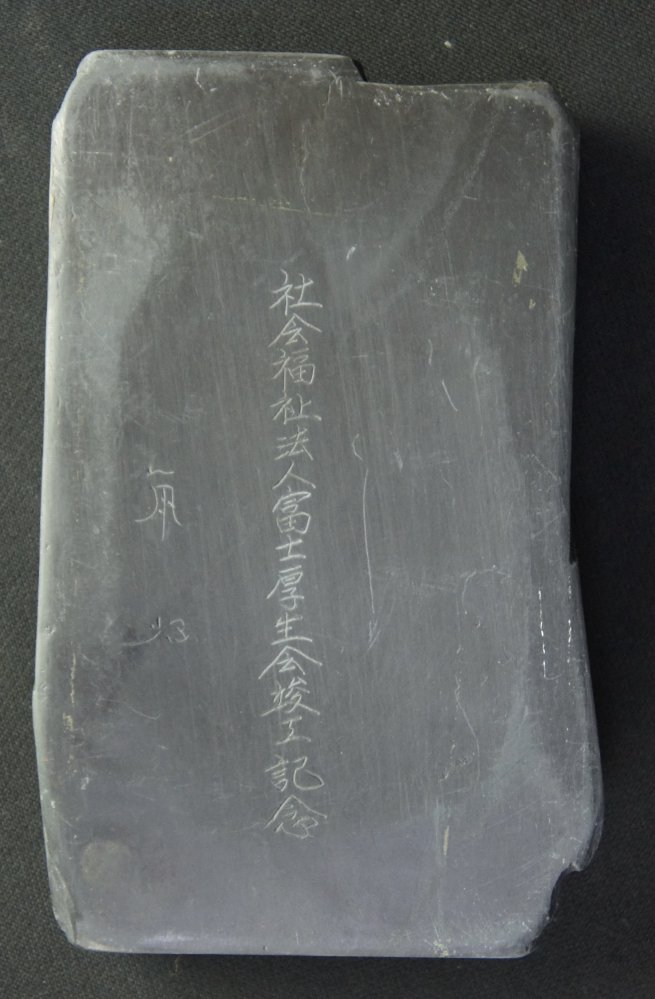 社会福祉法人富士厚生会竣工記念